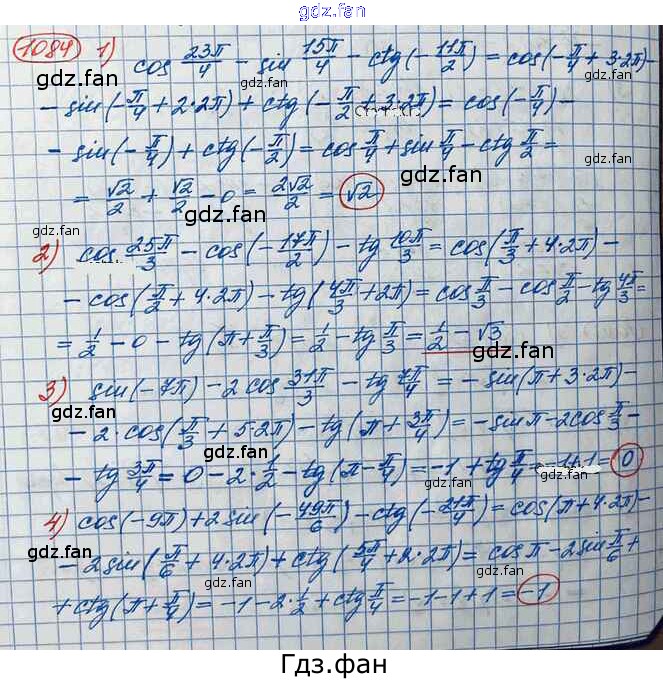 gdz.fan
1084 1) cos 23π/4 - sin 15π/4 - ctg(-11π/2) = cos(-π/4 + 3·2π) -
gdz.fan gdz.fan
- sin(-π/4 + 2·2π) + ctg(-π/2 + 3·2π) = cos(-π/4) -
- sin(-π/4) + ctg(-π/2) = cos π/4 + sin π/4 - ctg π/2 =
gdz.fan gdz.fan
= √2/2 + √2/2 - 0 = 2√2/2 = √2
gdz.fan
2) cos 25π/3 - cos(-17π/2) - tg 10π/3 = cos(π/3 + 4·2π) -
gdz.fan
- cos(π/2 + 4·2π) - tg(4π/3 + 2π) = cos π/3 - cos π/2 - tg 4π/3 =
gdz.fan
= 1/2 - 0 - tg(π + π/3) = 1/2 - tg π/3 = 1/2 - √3
gdz.fan
3) sin(-7π) - 2 cos 31π/3 - tg 7π/4 = - sin(π + 3·2π) -
gdz.fan gdz.fan
- 2·cos(π/3 + 5·2π) - tg(π + 3π/4) = - sin π - 2cos π/3 -
- tg 3π/4 = 0 - 2·1/2 - tg(π - π/4) = -1 + tg π/4 = -1+1 = 0
gdz.fan
4) cos(-9π) + 2 sin(-49π/6) - ctg(-21π/4) = cos(π + 4·2π) -
gdz.fan gdz.fan
- 2sin(π/6 + 4·2π) + ctg(5π/4 + 2·2π) = cos π - 2sin π/6 +
+ ctg(π + π/4) = -1 - 2·1/2 + ctg π/4 = -1-1+1 = -1
gdz.fan gdz.fan
Гдз.фан